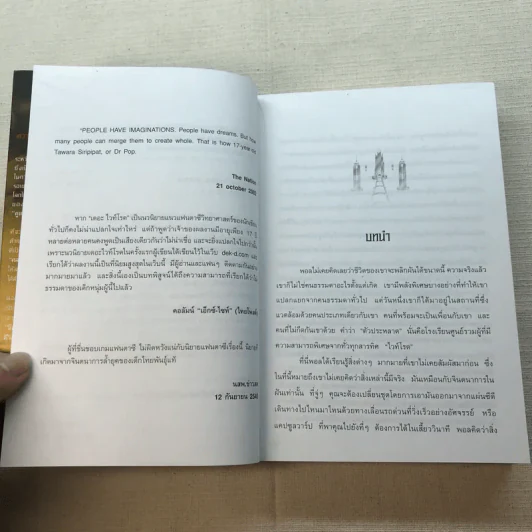 "PEOPLE HAVE IMAGINATIONS. People have dreams. But how
many people can merge them to create whole. That is how 17-year-old
Tawara Siripipat, or Dr Pop.
The Nation
21 october
หาก "เดอะ ไวท์โรด" เป็นนวนิยายแนวแฟนตาซีวิทยาศาสตร์ของนักเขียน
ทั่วไปก็คงไม่น่าแปลกใจเท่าไหร่ แต่ถ้าพูดว่าเจ้าของผลงานมีอายุเพียง 17 ปี
หลายต่อหลายคนคงพูดเป็นเสียงเดียวกันว่าไม่น่าเชื่อ และจะยิ่งแปลกใจไปกว่านั้น
เพราะนวนิยายเดอะไวท์โรดในครั้งแรกผู้เขียนได้เขียนไว้ในเว็บ dek-d.com และ
เรียกได้ว่าผลงานนี้เป็นที่นิยมสูงสุดในเว็บนี้ มีผู้อ่านและแฟนๆ ติดตามกันอย่าง
มากมายมาแล้ว และสิ่งนี้เองเป็นบทพิสูจน์ได้ถึงความสามารถที่เรียกได้ว่าไม่
ธรรมดาของเด็กหนุ่มผู้นี้ไปแล้ว
คอลัมน์ "เอ็กซ์-ไซท์" (ไทยโพสต์)
ผู้ที่ชื่นชอบเกมแฟนตาซี ไม่ผิดหวังแน่กับนิยายแฟนตาซีเรื่องนี้ นิยายที่
เกิดมาจากจินตนาการล้ำยุคของเด็กไทยพันธุ์แท้
นสพ.ข่าวสด
12 กันยายน
บทนำ
พอลไม่เคยคิดเลยว่าชีวิตของเขาจะพลิกผันได้ขนาดนี้ ความจริงแล้ว
เขาก็ไม่ใช่คนธรรมดาอะไรตั้งแต่แรก เขามีพลังพิเศษบางอย่างที่ทำให้เขา
แปลกแยกจากคนธรรมดาทั่วไป แต่วันหนึ่งเขาก็ได้มาอยู่ในสถานที่ซึ่ง
แวดล้อมด้วยคนประเภทเดียวกับเขา คนที่พร้อมจะเป็นเพื่อนกับเขา และ
คนที่ไม่กีดกันเขาด้วย คำว่า "ตัวประหลาด" นั่นคือโรงเรียนศูนย์รวมผู้ที่มี
ความสามารถพิเศษจากทั่วทุกสารทิศ "ไวท์โรด"
ที่นี่พอลได้เรียนรู้สิ่งต่างๆ มากมายที่เขาไม่เคยสัมผัสมาก่อน ซึ่ง
ในที่นี้หมายถึงเขาไม่เคยคิดว่าสิ่งเหล่านี้มีจริง มันเหมือนกับจินตนาการใน
ฝันเท่านั้น ที่จู่ๆ คุณจะต้องเปลี่ยนชุดโดยการเอามันออกมาจากแผ่นซีดี
เดินทางไปไหนมาไหนด้วยทางเลื่อนรถด่วนที่วิ่งเร็วอย่างอัศจรรย์ หรือ
แคปซูลวาร์ป ที่พาคุณไปยังที่ๆ ต้องการได้ในเสี้ยววินาที พอลคิดว่าสิ่ง